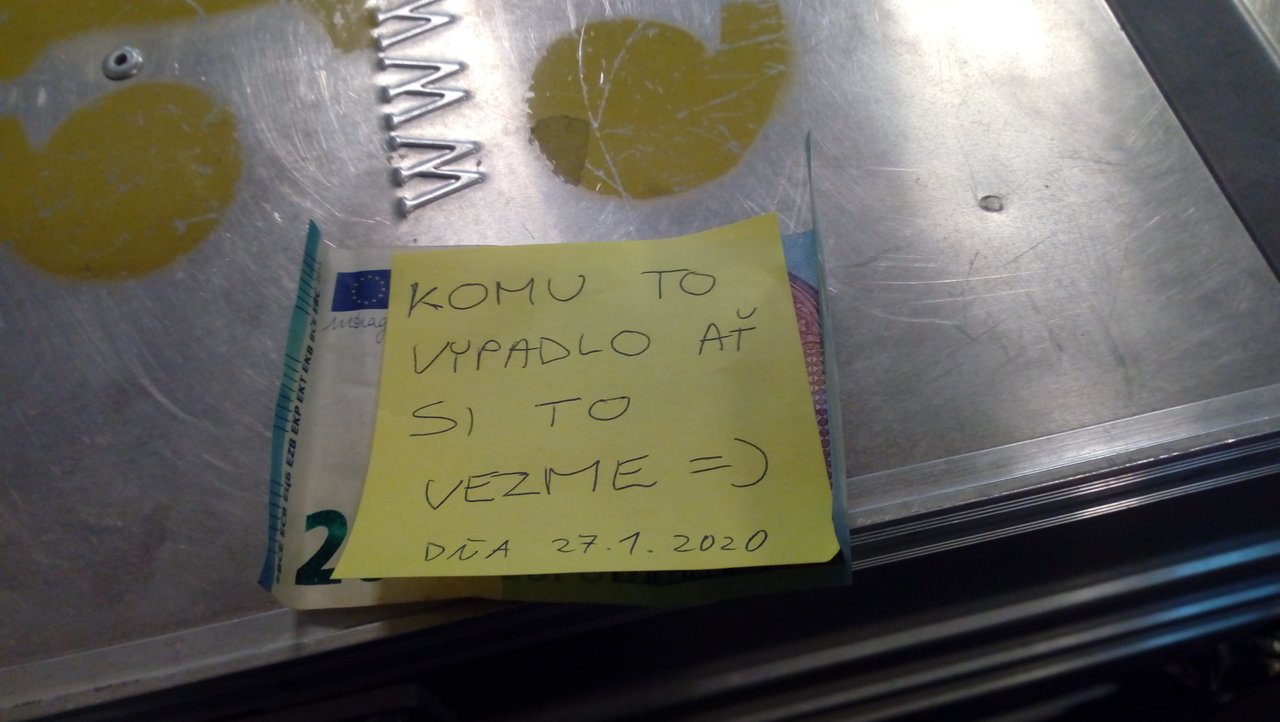 WWW
KOMU TO
VYPADLO AŤ
SI TO
VEZME =)
DŇA 27.1.2020
EZB EKP EKT EKB BCE EBC
2